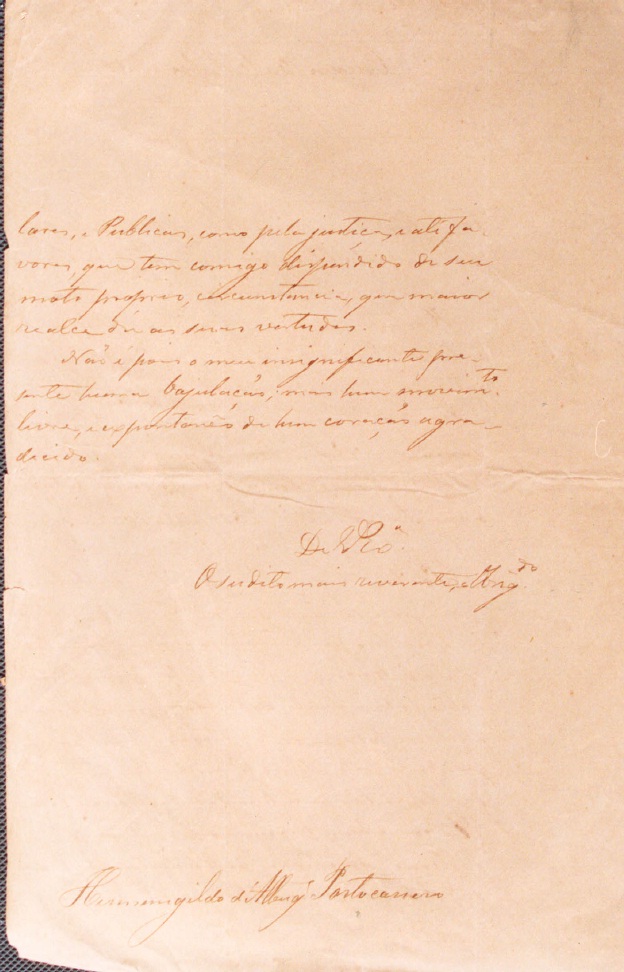 lares, e Publicas, como pela justiça, e até fa-
vores, que tem comigo dispendido de seu
moto proprio, circunstancia, que maior
realce dá as suas vertudes.
Não é pois o meu insignificante pre-
sente huma bajulação; mas hum movim.to
livre, e expontaneo de hum coração agra-
decido.
De V. Ex.a
O subdito mais reverente, e Obrig.do
Hermenegildo d'Albuq.e Portocarrero